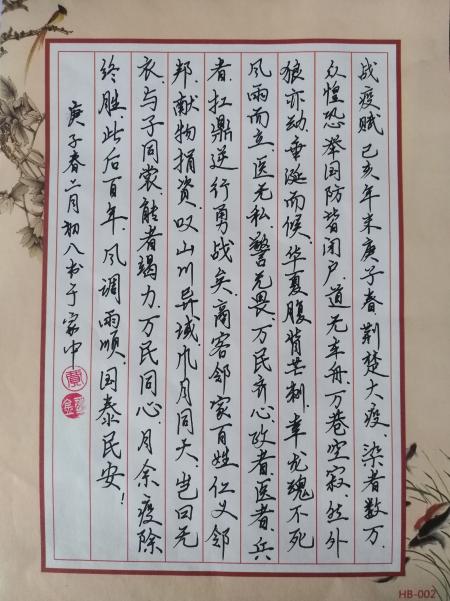 战疫赋 己亥年末庚子春荆楚大疫.染者数万.
众惶恐.举国防.皆闭户.道无车舟.万巷空寂.然外
狼亦动.垂涎而候.华夏腹背芒刺.幸龙魂不死
风雨而立.医无私.警无畏.万民齐心.政者.医者.兵
者.扛鼎逆行勇战矣.商客邻家百姓仁义邻
邦献物捐资.叹山川异域风月同天.岂曰无
衣.与子同裳.能者竭力.万民同心.月余.疫除
终胜.此后百年.风调雨顺.国泰民安!
庚子春二月初八书于家中
HB-002